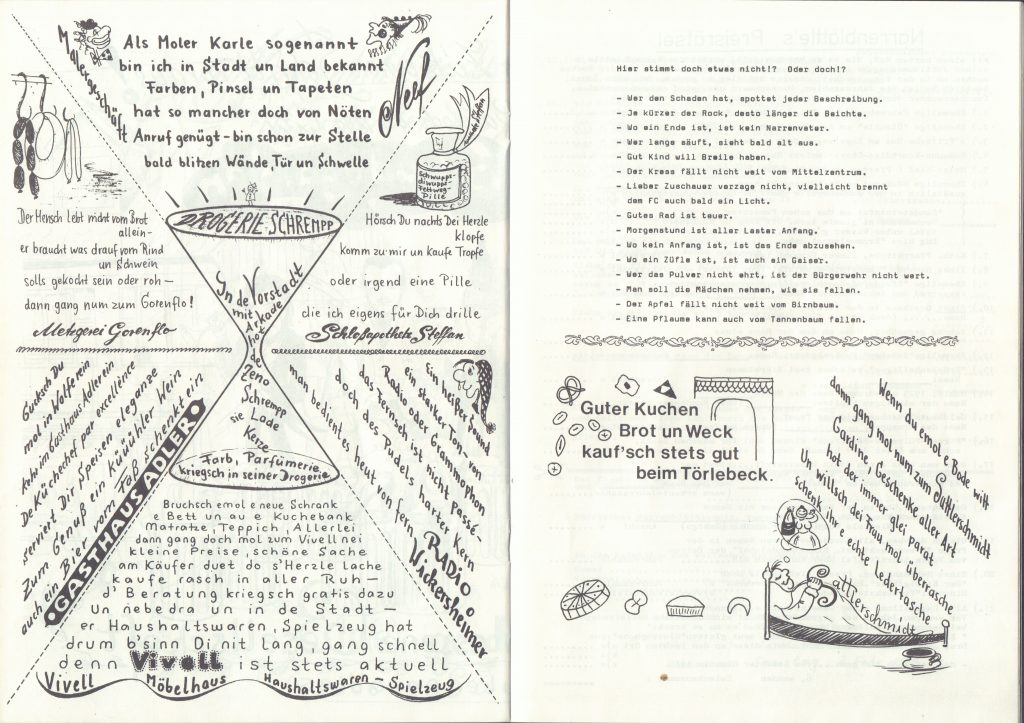 Malergeschäft
Als Moler Karle sogenannt
bin ich in Stadt un Land bekannt
Farben, Pinsel un Tapeten
hat so mancher doch von Nöten
Anruf genügt - bin schon zur Stelle
bald blitzen Wände, Tür un Schwelle
Neef
Schwupps-
diwupps-
fettweg-
Pille
Der Mensch lebt nicht vom Brot
allein-
er braucht was drauf vom Rind
un Schwein
solls gekocht sein oder roh -
dann gang num zum Gorenflo!
Metzgerei Gorenflo
DROGERIE SCHREMPP
Yn de Vorstadt
mit Arkade
hot de
Zeno
Schrempp
sie Lade
Kerze
Farb, Parfümerie
kriegsch in seiner Drogerie
Hörsch Du nachts Dei Herzle
klopfe
Komm zu mir un kaufe Tropfe
oder irgend eine Pille
die ich eigens für Dich drille
Schloßapotheke Steffan
Gucksch Du
mol in Wolfe rein
kehr im Gasthaus Adler ein
De Küchechef par excellence
serviert Dir Speisen elegance
Zum Genuß ein küühler Wein
auch ein Bier vorm Faß schenkt er ein
GASTHAUS ADLER
Ein heißer Sound
ein starker Ton - von
Radio oder Grammophon
das Fernseh ist nicht Passé -
doch des Pudels harter Kern
man bedient es heut von fern
RADIO
Wickersheimer
Bruchsch emol e neue Schrank
e Bett un au e Kuchebank
Matratze, Teppich, Allerlei
dann gang doch mol zum Vivell nei
kleine Preise, schöne Sache
am Käufer duet do s'Herzle lache
kaufe rasch in aller Ruh -
d' Beratung kriegsch gratis dazu
Un nebedra un in de Stadt -
er Haushaltswaren, Spielzeug hat
drum b'sinn Di nit lang, gang schnell
denn Vivell ist stets aktuell
Vivell Möbelhaus Haushaltswaren - Spielzeug
Hier stimmt doch etwas nicht!? Oder doch!?
- Wer den Schaden hat, spottet jeder Beschreibung.
- Je kürzer der Rock, desto länger die Beichte.
- Wo ein Ende ist, ist kein Narrenvater.
- Wer lange säuft, sieht bald alt aus.
- Gut Kind will Breile haben.
- Der Kress fällt nicht weit vom Mittelzentrum.
- Lieber Zuschauer verzage nicht, vielleicht brennt
dem FC auch bald ein Licht.
- Gutes Rad ist teuer.
- Morgenstund ist aller Laster Anfang.
- Wo kein Anfang ist, ist das Ende abzusehen.
- Wo ein ZÜfle ist, ist auch ein Gaiser.
- Wer das Pulver nicht ehrt, ist der Bürgerwehr nicht wert.
- Man soll die Mädchen nehmen, wie sie fallen.
- Der Apfel fällt nicht weit vom Birnbaum.
- Eine Pflaume kann auch vom Tannenbaum fallen.
Guter Kuchen
Brot un Weck
kauf'sch stets gut
beim Törlebeck.
Wenn du emol e Bode witt
dann gang mol num zum Sattlerschmidt
Gardine, Geschenke aller Art
hot der immer glei parat
Un willsch dei Frau mol überrasche
schenk ihr e echte Ledertasche
attlerschmidt